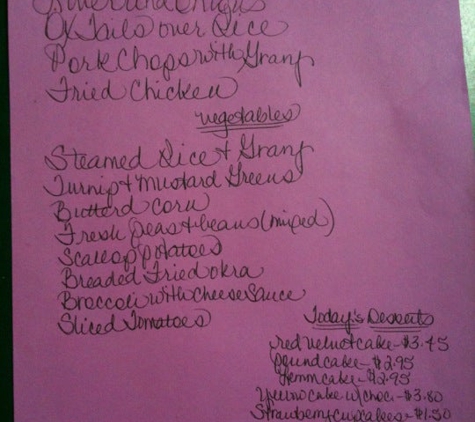 and Onions
Ox Tails over Rice
Pork Chops with Grany
Fried Chicken
vegetables
Steamed Rice & Grany
Turnip & Mustard Greens
Butterd corn
Fresh peas & beans (mixed)
Scallop potatoes
Breaded Fried okra
Broccoli with Cheese Sauce
Sliced Tomatoes
Today's Desserts
red velvet cake - $3.45
pound cake - $2.95
cake - $2.95
cake w/choc - $3.80
Strawberry cupcakes - $1.50